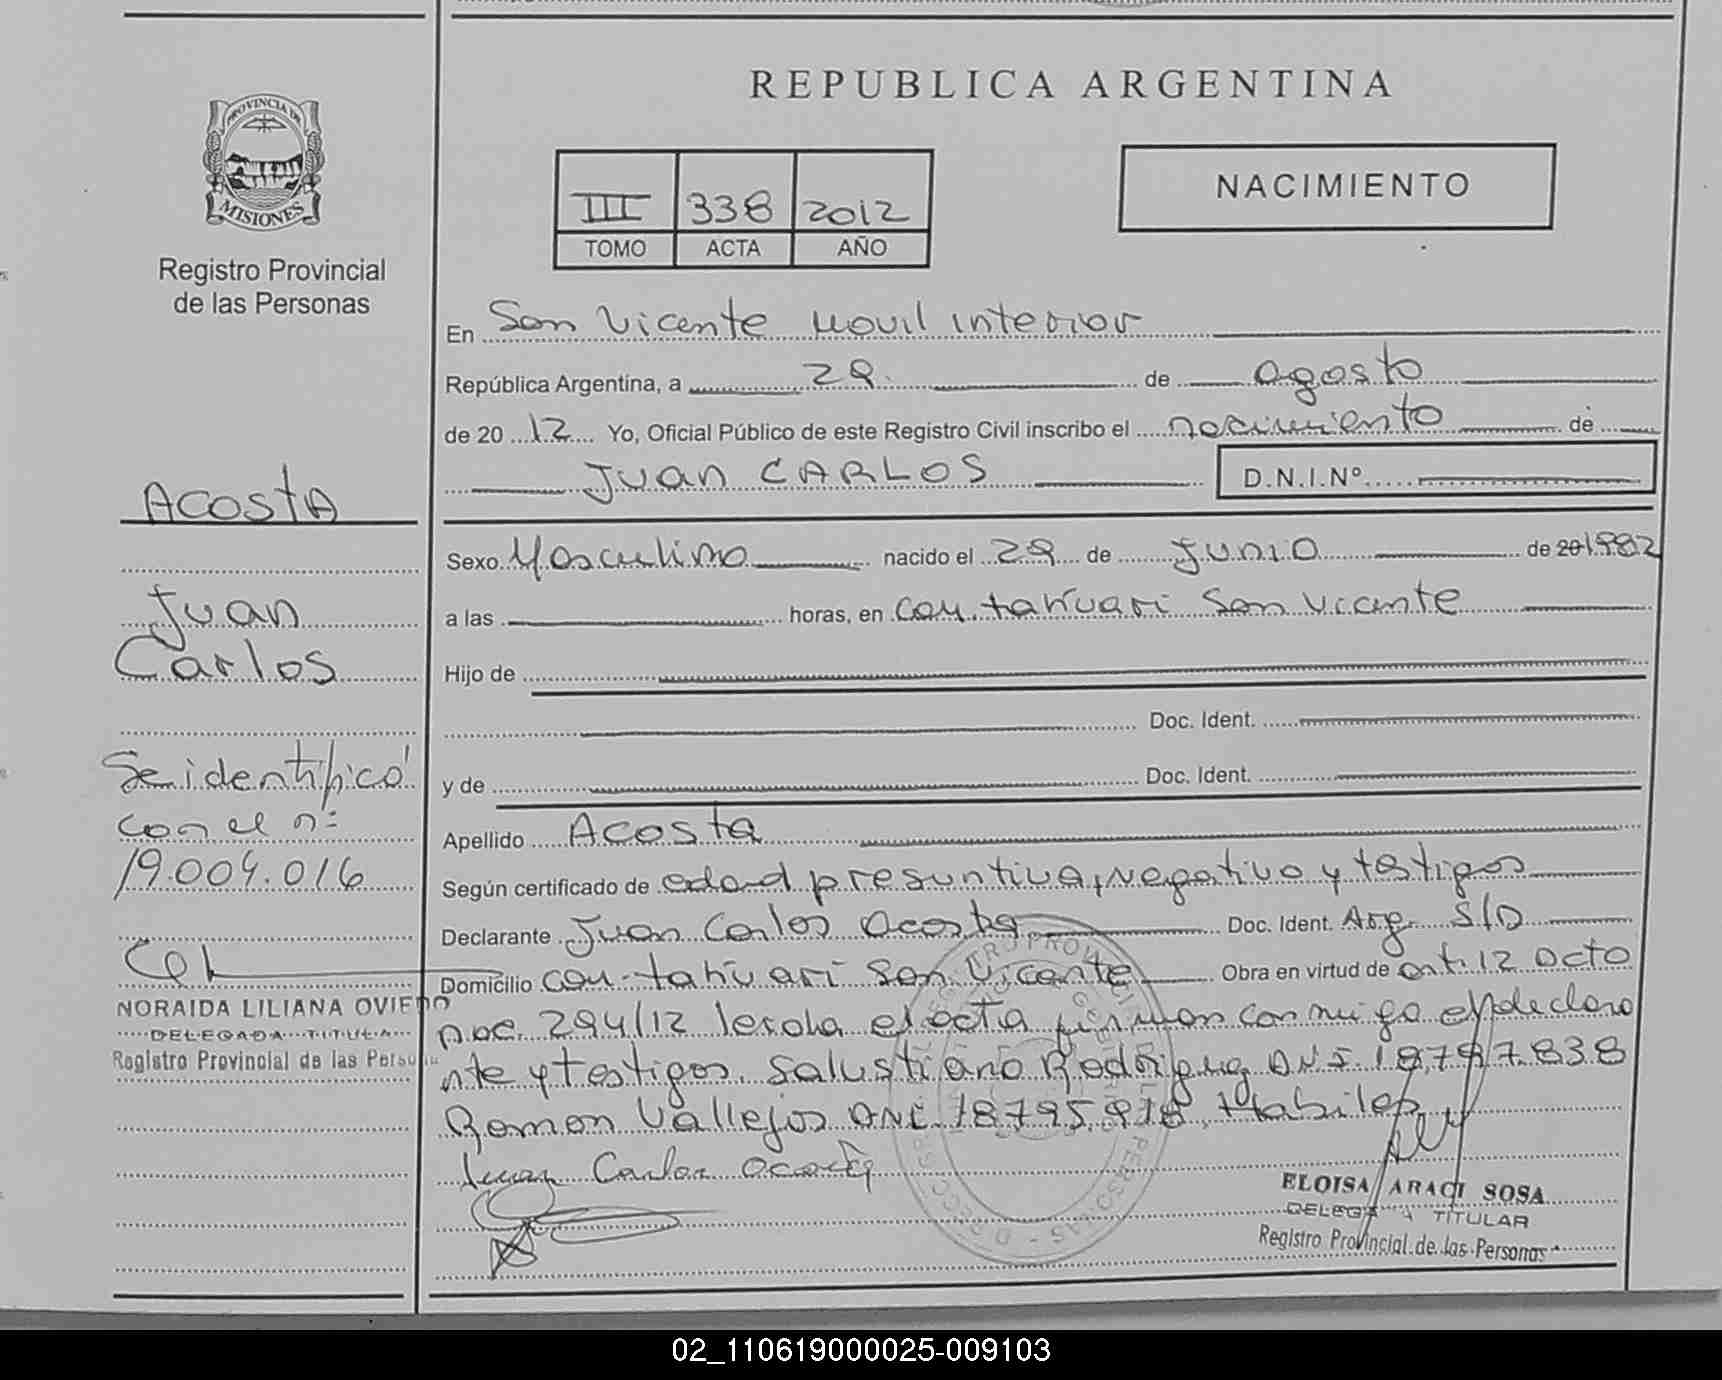 REPUBLICA ARGENTINA
PROVINCIA DE
MISIONES
Registro Provincial
de las Personas
III 338 2012
TOMO ACTA AÑO
NACIMIENTO
En San Vicente Movil interior
República Argentina, a 29 de agosto
de 20 12 Yo, Oficial Público de este Registro Civil inscribo el nacimiento de
Juan CARLOS D.N.I.Nº
ACOSTA
Juan
Carlos
Se identificó
con el nº
19.004.016
NORAIDA LILIANA OVIEDO
DELEGADA TITULA
Registro Provincial de las Perso
Sexo Masculino nacido el 29 de Junio de 20 1982
a las horas, en San Vicente
Hijo de
Doc. Ident.
y de Doc. Ident.
Apellido Acosta
Según certificado de edad presuntiva, negativo y testigos
Declarante Juan Carlos Acosta Doc. Ident. Arg. S/D
Domicilio San Vicente Obra en virtud de art. 12 Dcto
294/12 leida el acta firman conmigo el declara
nte y testigos. Salustiano Rodriguez DNI 18.797.838
Ramon Vallejos DNI 18795.918. Habiles
Juan Carlos Acosta
ELOISA ARACI SOSA
DELEGADA TITULAR
Registro Provincial de las Personas
02_110619000025-009103